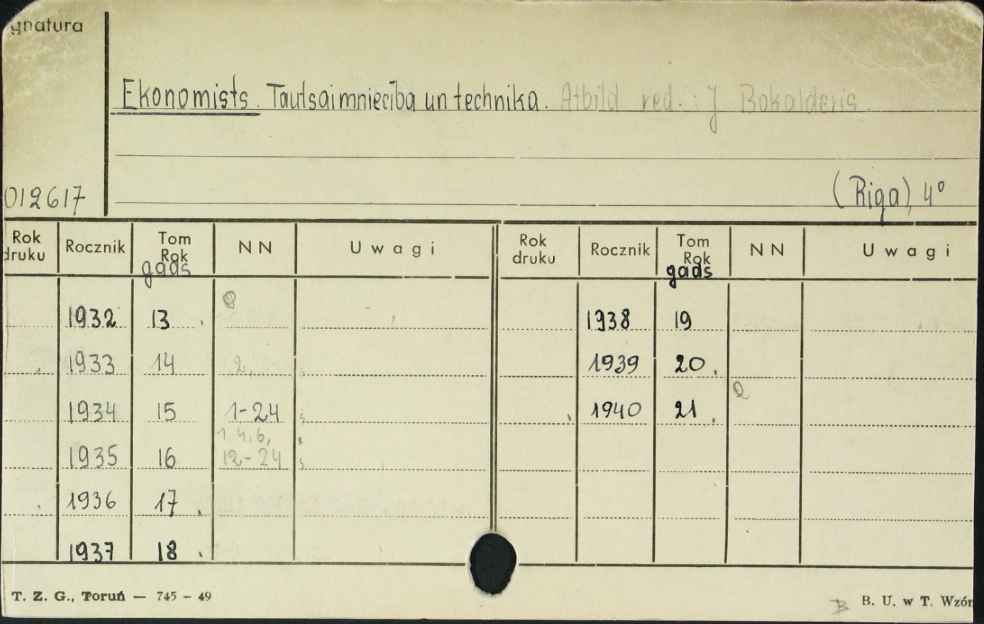 gnatura
Ekonomists. Tautsaimniecība un technika. Atbild red.: J Bokalderis
012617 (Riga), 4°
Rok druku Rocznik Tom Rok gads NN Uwagi Rok druku Rocznik Tom Rok gads NN Uwagi
1932 13 1938 19
1933 14 2, 1939 20
1934 15 1-24 1940 21
1935 16 1 4, 6, 12-24
1936 17
1937 18
T. Z. G., Toruń — 745 - 49 B. U. w T. Wzór